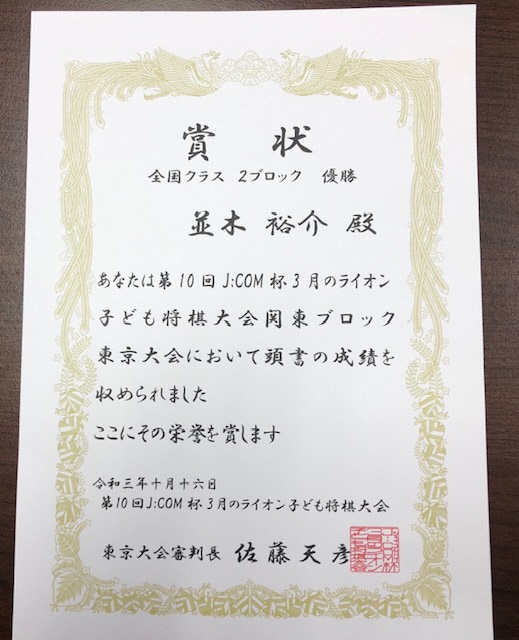 賞 状
全国クラス 2ブロック 優勝
並木 裕介 殿
あなたは第10回J:COM杯3月のライオン
子ども将棋大会関東ブロック
東京大会において頭書の成績を
収められました
ここにその栄誉を賞します
令和三年十月十六日
第10回J:COM杯3月のライオン子ども将棋大会
東京大会審判長 佐藤天彦